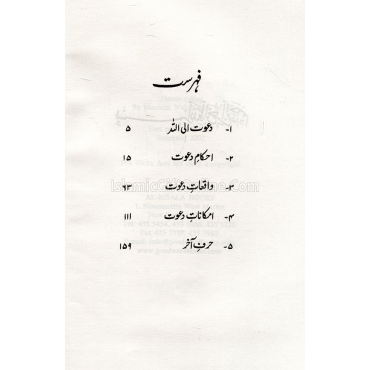 فہرست
۱- دعوت الی اللہ ۵
۲- احکامِ دعوت ۱۵
۳- واقعاتِ دعوت ۶۳
۴- امکاناتِ دعوت ۱۱۱
۵- حرفِ آخر ۱۵۹